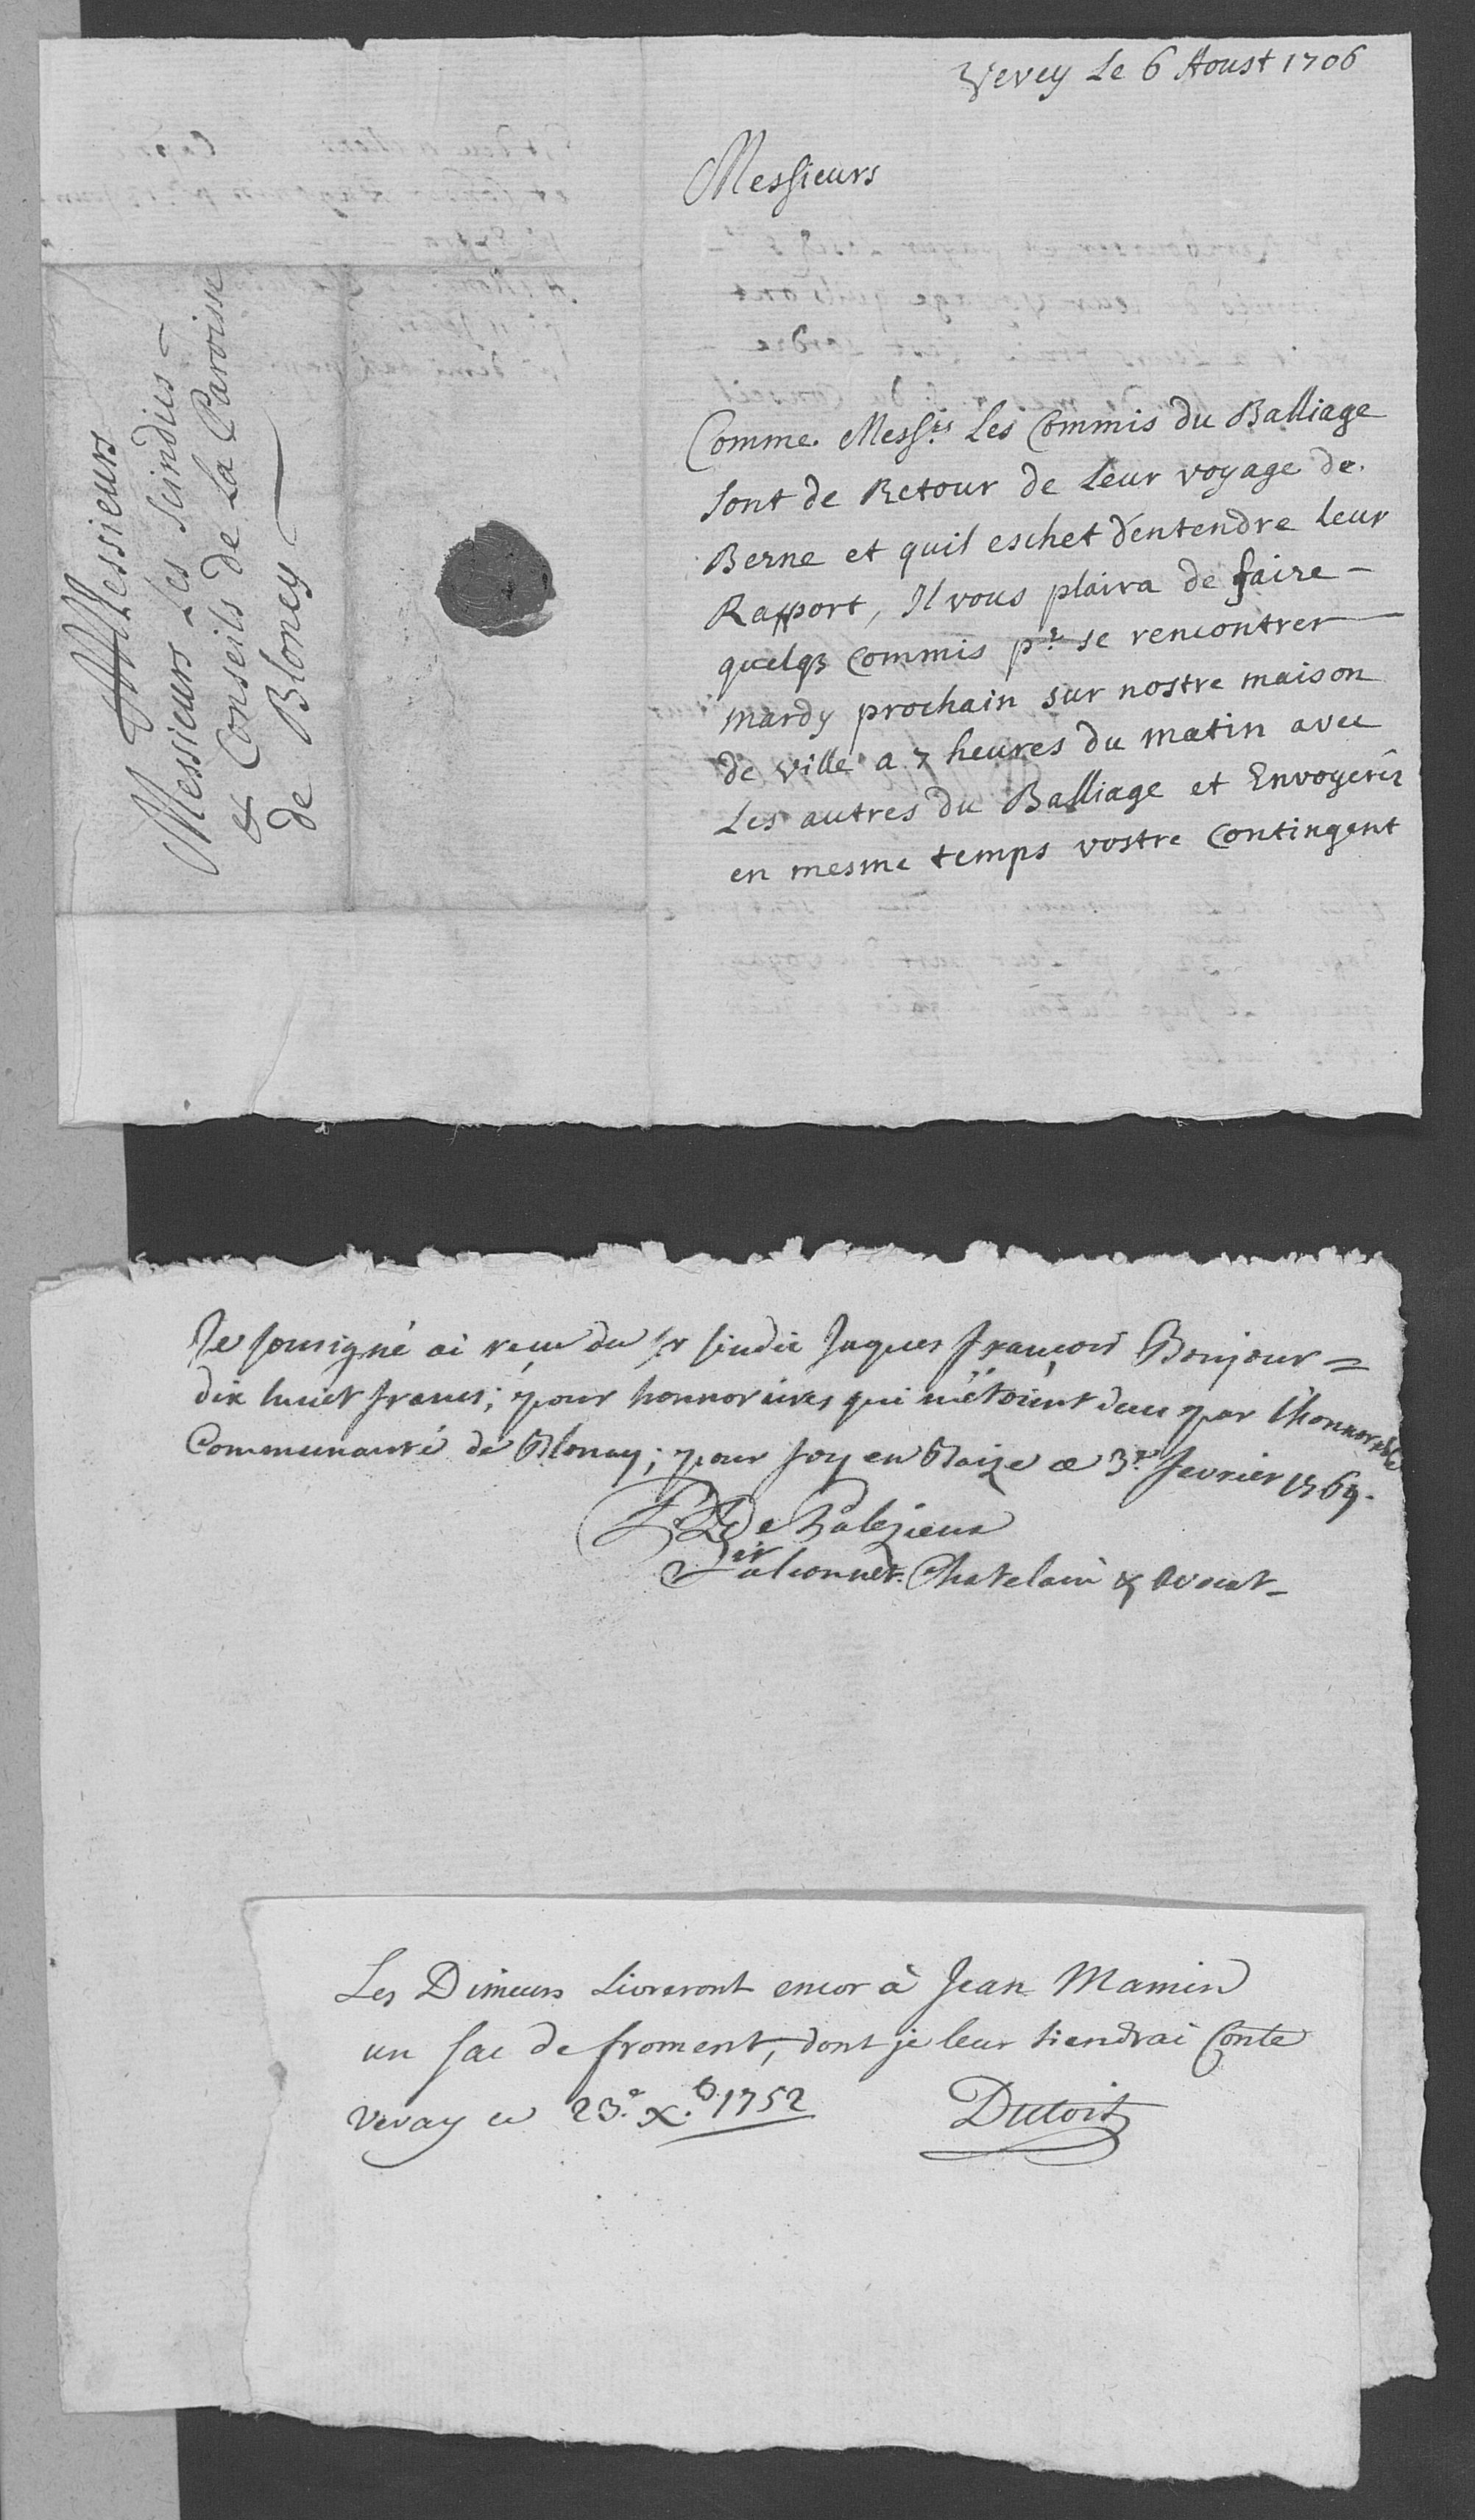 Vevey Le 6 Aoust 1706
Messieurs
Comme Mess.rs Les Commis du Balliage
sont de Retour de Leur voyage de
Berne et quil eschet d'entendre leur
Rapport, Il vous plaira de faire -
quelq3 commis p.r se rencontrer
mardy prochain sur nostre maison
de ville a 7 heures du matin avec
Les autres du Balliage et Envoyerés
en mesme temps vostre contingent
Messieurs
Messieurs Les scindics
& Conseils de La Paroisse
de Bloney
Je sousigné ai receu du sr sindic Jaques François Bonjour =
dix huict francs; pour honnoraires qui m'étoient deus par l'honnorable
Communauté de Blonay; pour foy en Baize ce 3.e fevrier 1769.
De Palezieux
Falconnet. Chatelain & Avocat -
Les Dimeurs Livreront encor à Jean Mamin
un sac de froment, dont je leur tiendrai Conte
Vevay ce 23.e X.b 1752
Dutoit